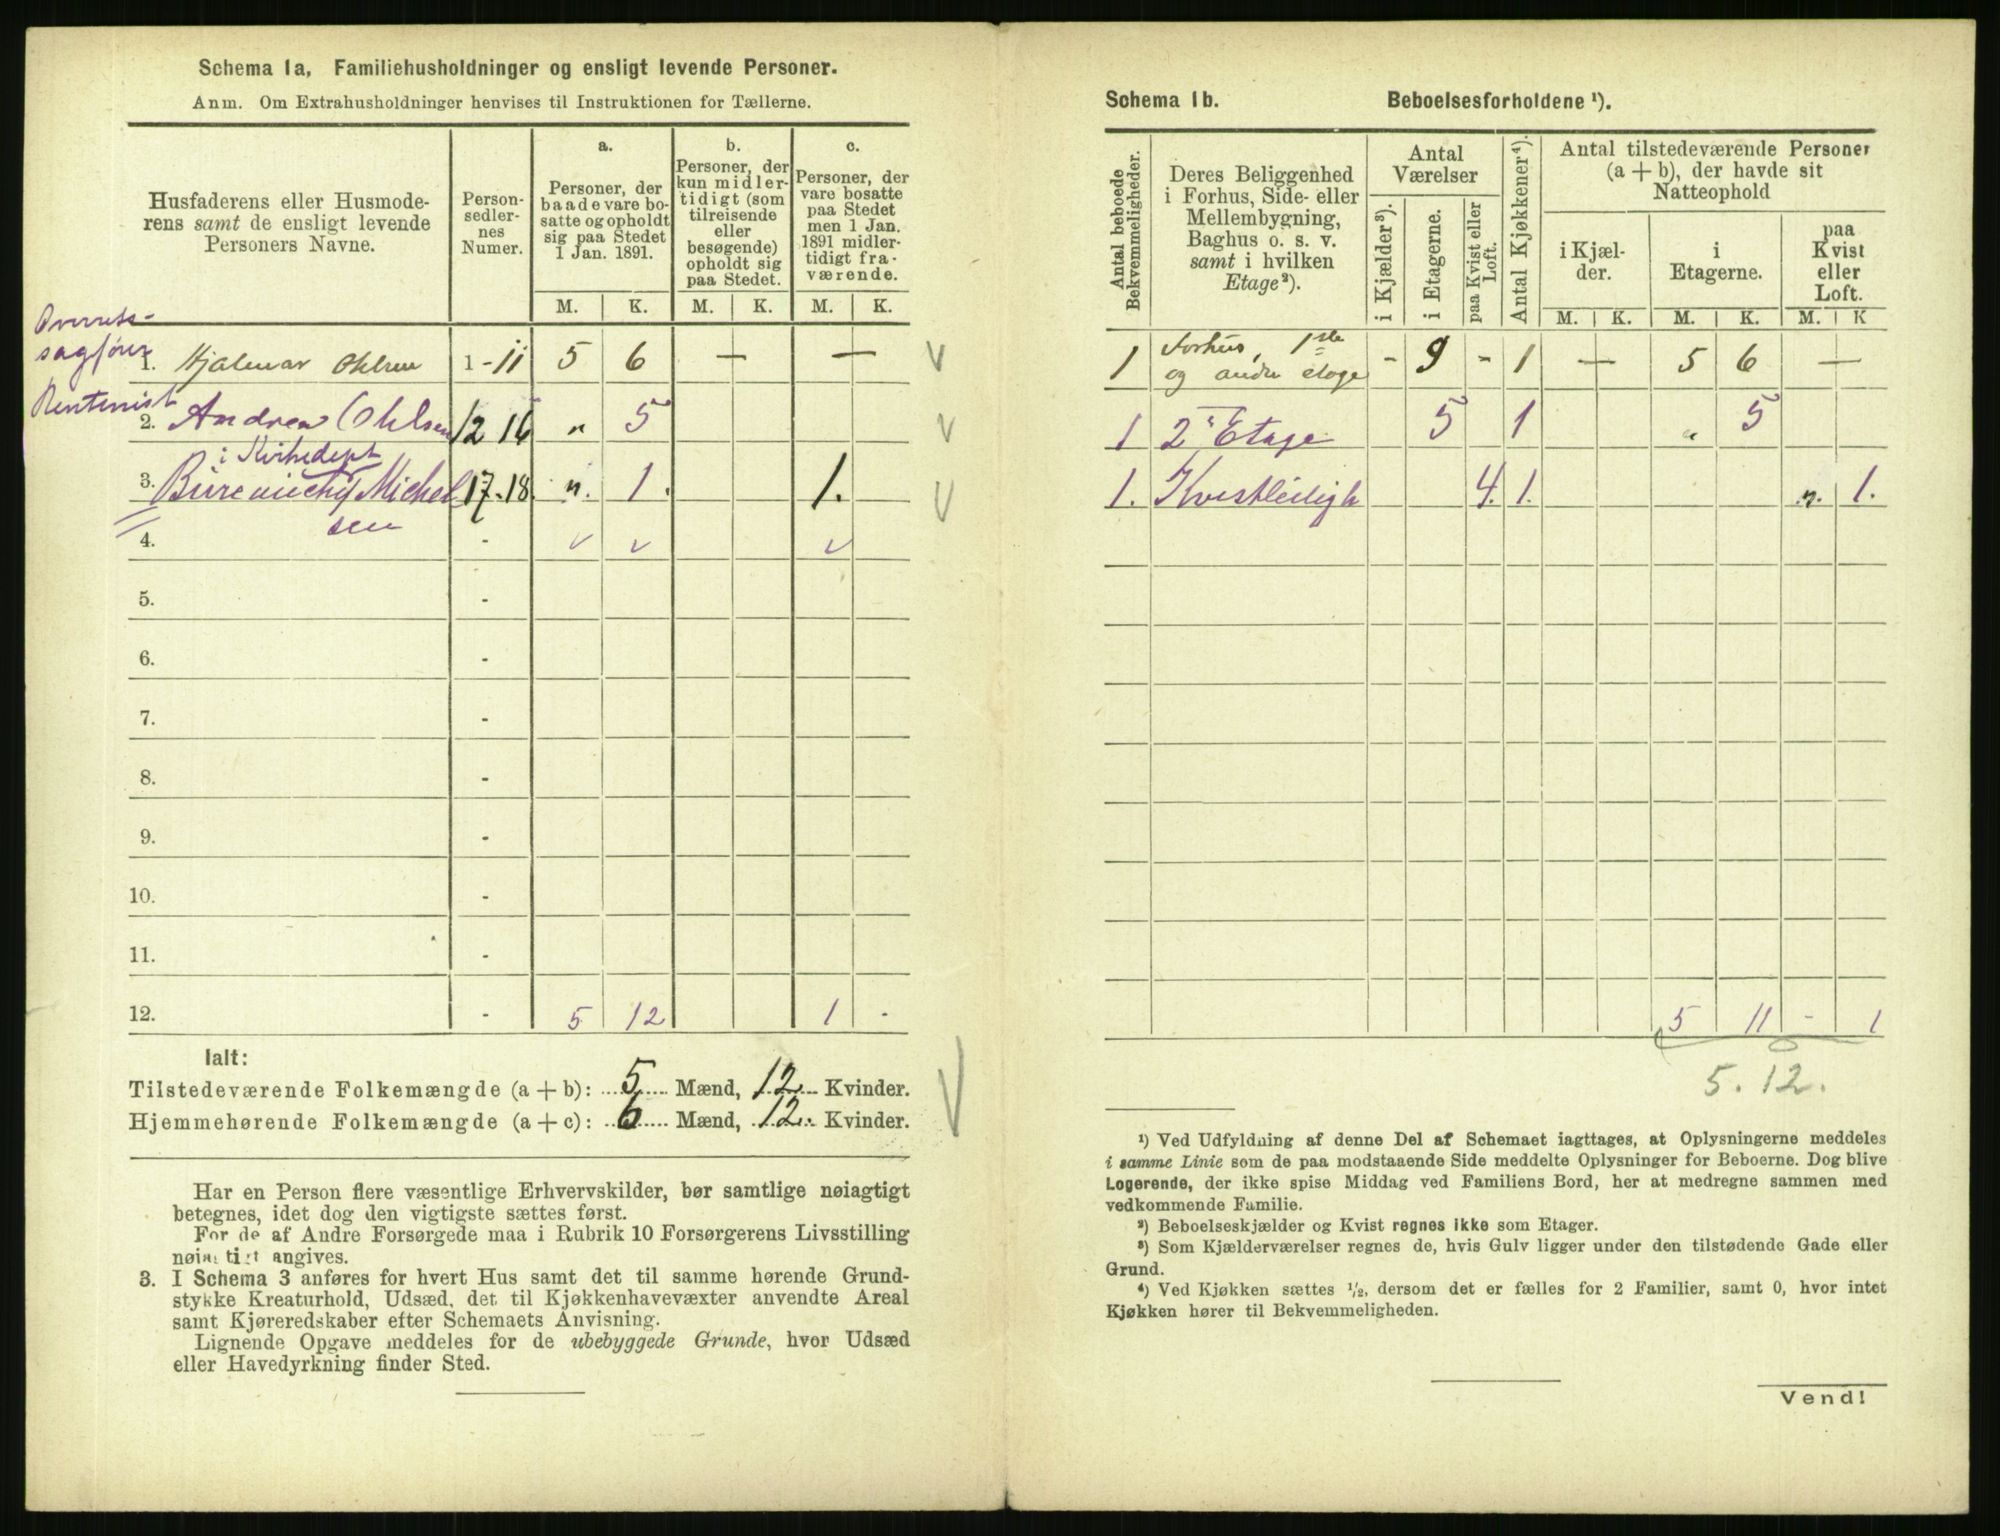 Schema 1a, Familiehusholdninger og ensligt levende Personer.
Anm. Om Extrahusholdninger henvises til Instruktionen for Tællerne.
Husfaderens eller Husmode-
rens samt de ensligt levende
Personers Navne.
Person-
sedler-
nes
Numer.
a.
Personer, der
baade vare bo-
satte og opholdt
sig paa Stedet
1 Jan. 1891.
b.
Personer, der
kun midler-
tidigt (som
tilreisende
eller
besøgende)
opholdt sig
paa Stedet.
c.
Personer, der
vare bosatte
paa Stedet
men 1 Jan.
1891 midler-
tidigt fra-
værende.
M. K. M. K. M. K.
Overrets-
sagfører
1. Hjalmar Ohlsen 1 - 11 5 6 — —
Rentenist
2. Andrea Ohlsen 12 16 " 5
i Kirkedept
3. Büreauchef Michel 17 - 18 n. 1. 1.
sen
4. - v v v
5. -
6. -
7. -
8. -
9. -
10. -
11. -
12. - 5 12 1 -
Ialt:
Tilstedeværende Folkemængde (a + b): 5 Mænd, 12 Kvinder.
Hjemmehørende Folkemængde (a + c): 6 Mænd, 12. Kvinder.
Har en Person flere væsentlige Erhvervskilder, bør samtlige nøiagtigt
betegnes, idet dog den vigtigste sættes først.
For de af Andre Forsørgede maa i Rubrik 10 Forsørgerens Livsstilling
nøiagtigt angives.
3. I Schema 3 anføres for hvert Hus samt det til samme hørende Grund-
stykke Kreaturhold, Udsæd, det til Kjøkkenhavevæxter anvendte Areal
samt Kjøreredskaber efter Schemaets Anvisning.
Lignende Opgave meddeles for de ubebyggede Grunde, hvor Udsæd
eller Havedyrkning finder Sted.
Schema 1b. Beboelsesforholdene ¹).
Antal beboede
Bekvemmeligheder.
Deres Beliggenhed
i Forhus, Side- eller
Mellembygning,
Baghus o. s. v.
samt i hvilken
Etage²).
Antal
Værelser
i Kjælder³).
i Etagerne.
paa Kvist eller
Loft.
Antal Kjøkkener⁴).
Antal tilstedeværende Personer
(a + b), der havde sit
Natteophold
i Kjæl-
der.
i
Etagerne.
paa
Kvist
eller
Loft.
M. K. M. K. M. K
1 Forhus, 1ste og anden etage - 9 - 1 — 5 6 —
1 2 Etage 5 1 " 5
1. Kvistleiligh 4. 1. n. 1.
5 11 - 1
5. 12.
¹) Ved Udfyldning af denne Del af Schemaet iagttages, at Oplysningerne meddeles
i samme Linie som de paa modstaaende Side meddelte Oplysninger for Beboerne. Dog blive
Logerende, der ikke spise Middag ved Familiens Bord, her at medregne sammen med
vedkommende Familie.
²) Beboelseskjælder og Kvist regnes ikke som Etager.
³) Som Kjælderværelser regnes de, hvis Gulv ligger under den tilstødende Gade eller
Grund.
⁴) Ved Kjøkken sættes ½, dersom det er fælles for 2 Familier, samt 0, hvor intet
Kjøkken hører til Bekvemmeligheden.
Vend!